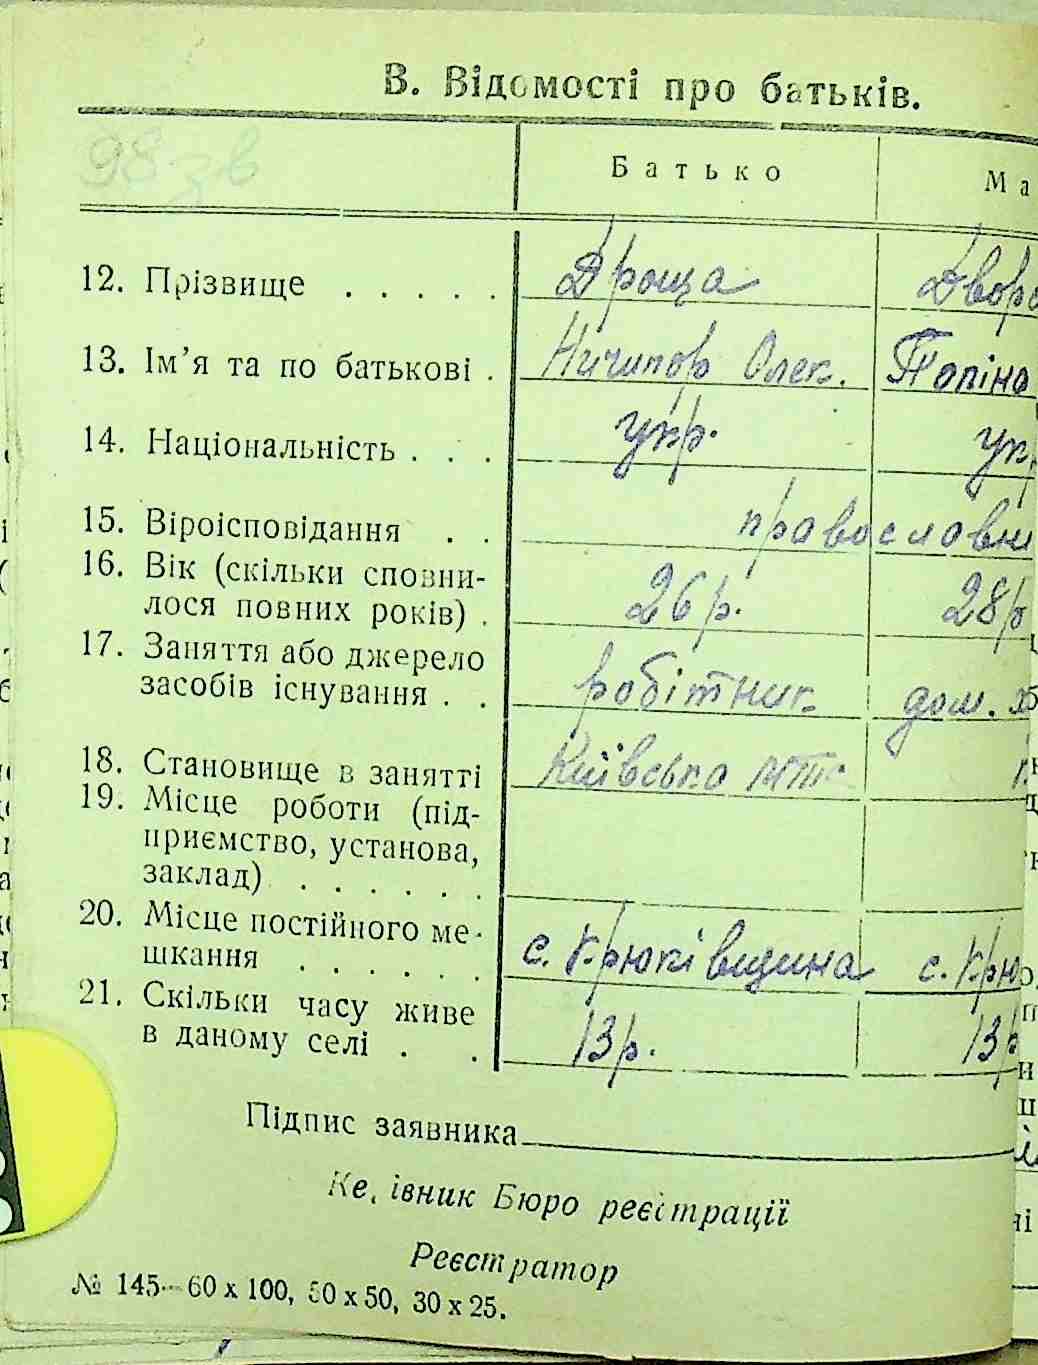 В. Відомості про батьків.
98 зв
Батько Ма
12. Прізвище . . . . . Дроща Двор
13. Ім’я та по батькові . Ничипор Олек. Тапіна
14. Національність . . . укр. ук
15. Віроісповідання . . православн
16. Вік (скільки сповни-
лося повних років) . 26 р. 28 р
17. Заняття або джерело
засобів існування . . робітник дом. х
18. Становище в занятті Київсько МТС
19. Місце роботи (під-
приємство, установа,
заклад) . . . . . .
20. Місце постійного ме-
шкання . . . . . . с. Крюківщина с. Крю
21. Скільки часу живе
в даному селі . . 13 р. 13 р
Підпис заявника
Керівник Бюро реєстрації
Реєстратор
№ 145—60 х 100, 50 х 50, 30 х 25.